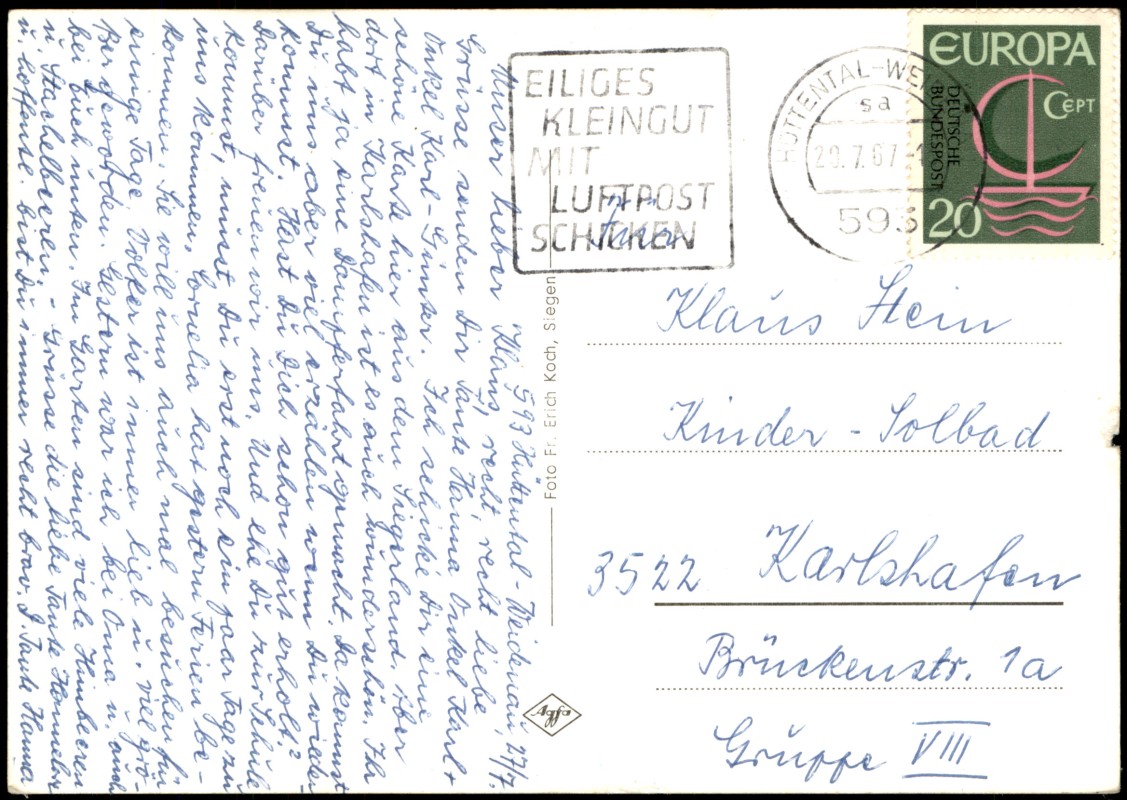 593 Hüttental-Weidenau, 27/7.
Unser lieber Klaus! recht, recht liebe
Grüsse senden Dir Tante Hanna Onkel Karl +
Onkel Karl-Günter. Ich schicke Dir eine
schöne Karte hier aus dem Siegerland. Aber
dort in Karlshafen ist es auch wunderschön. Ihr
habt ja eine Dampferfahrt gemacht. Da kannst
Du uns aber viel erzählen wenn Du wieder
kommst. Hast Du Dich schon gut erholt?
Darüber freuen wir uns. Und ehe Du zur Schule
kommst, musst Du erst noch ein paar Tage zu
uns kommen. Cornelia hat gestern Ferien be-
kommen. Sie will uns auch mal besuchen für
einige Tage. Volker ist immer lieb u. viel grö-
ßer geworden. Gestern war ich bei Oma u. auch
bei Euch unten. Im Garten sind viele Himbeeren
u. Stachelbeeren. - Grüsse die liebe Tante Hannelore
u. hoffentl. bist Du immer recht brav. D. Tante Hanna
EILIGES
KLEINGUT
MIT
LUFTPOST
SCHICKEN
HÜTTENTAL-WEI
sa
29.7.67
593
EUROPA
CEPT
DEUTSCHE
BUNDESPOST
20
Foto Fr. Erich Koch, Siegen
Agfa
Klaus Stein
Kinder-Solbad
3522 Karlshafen
Brückenstr. 1a
Gruppe VIII